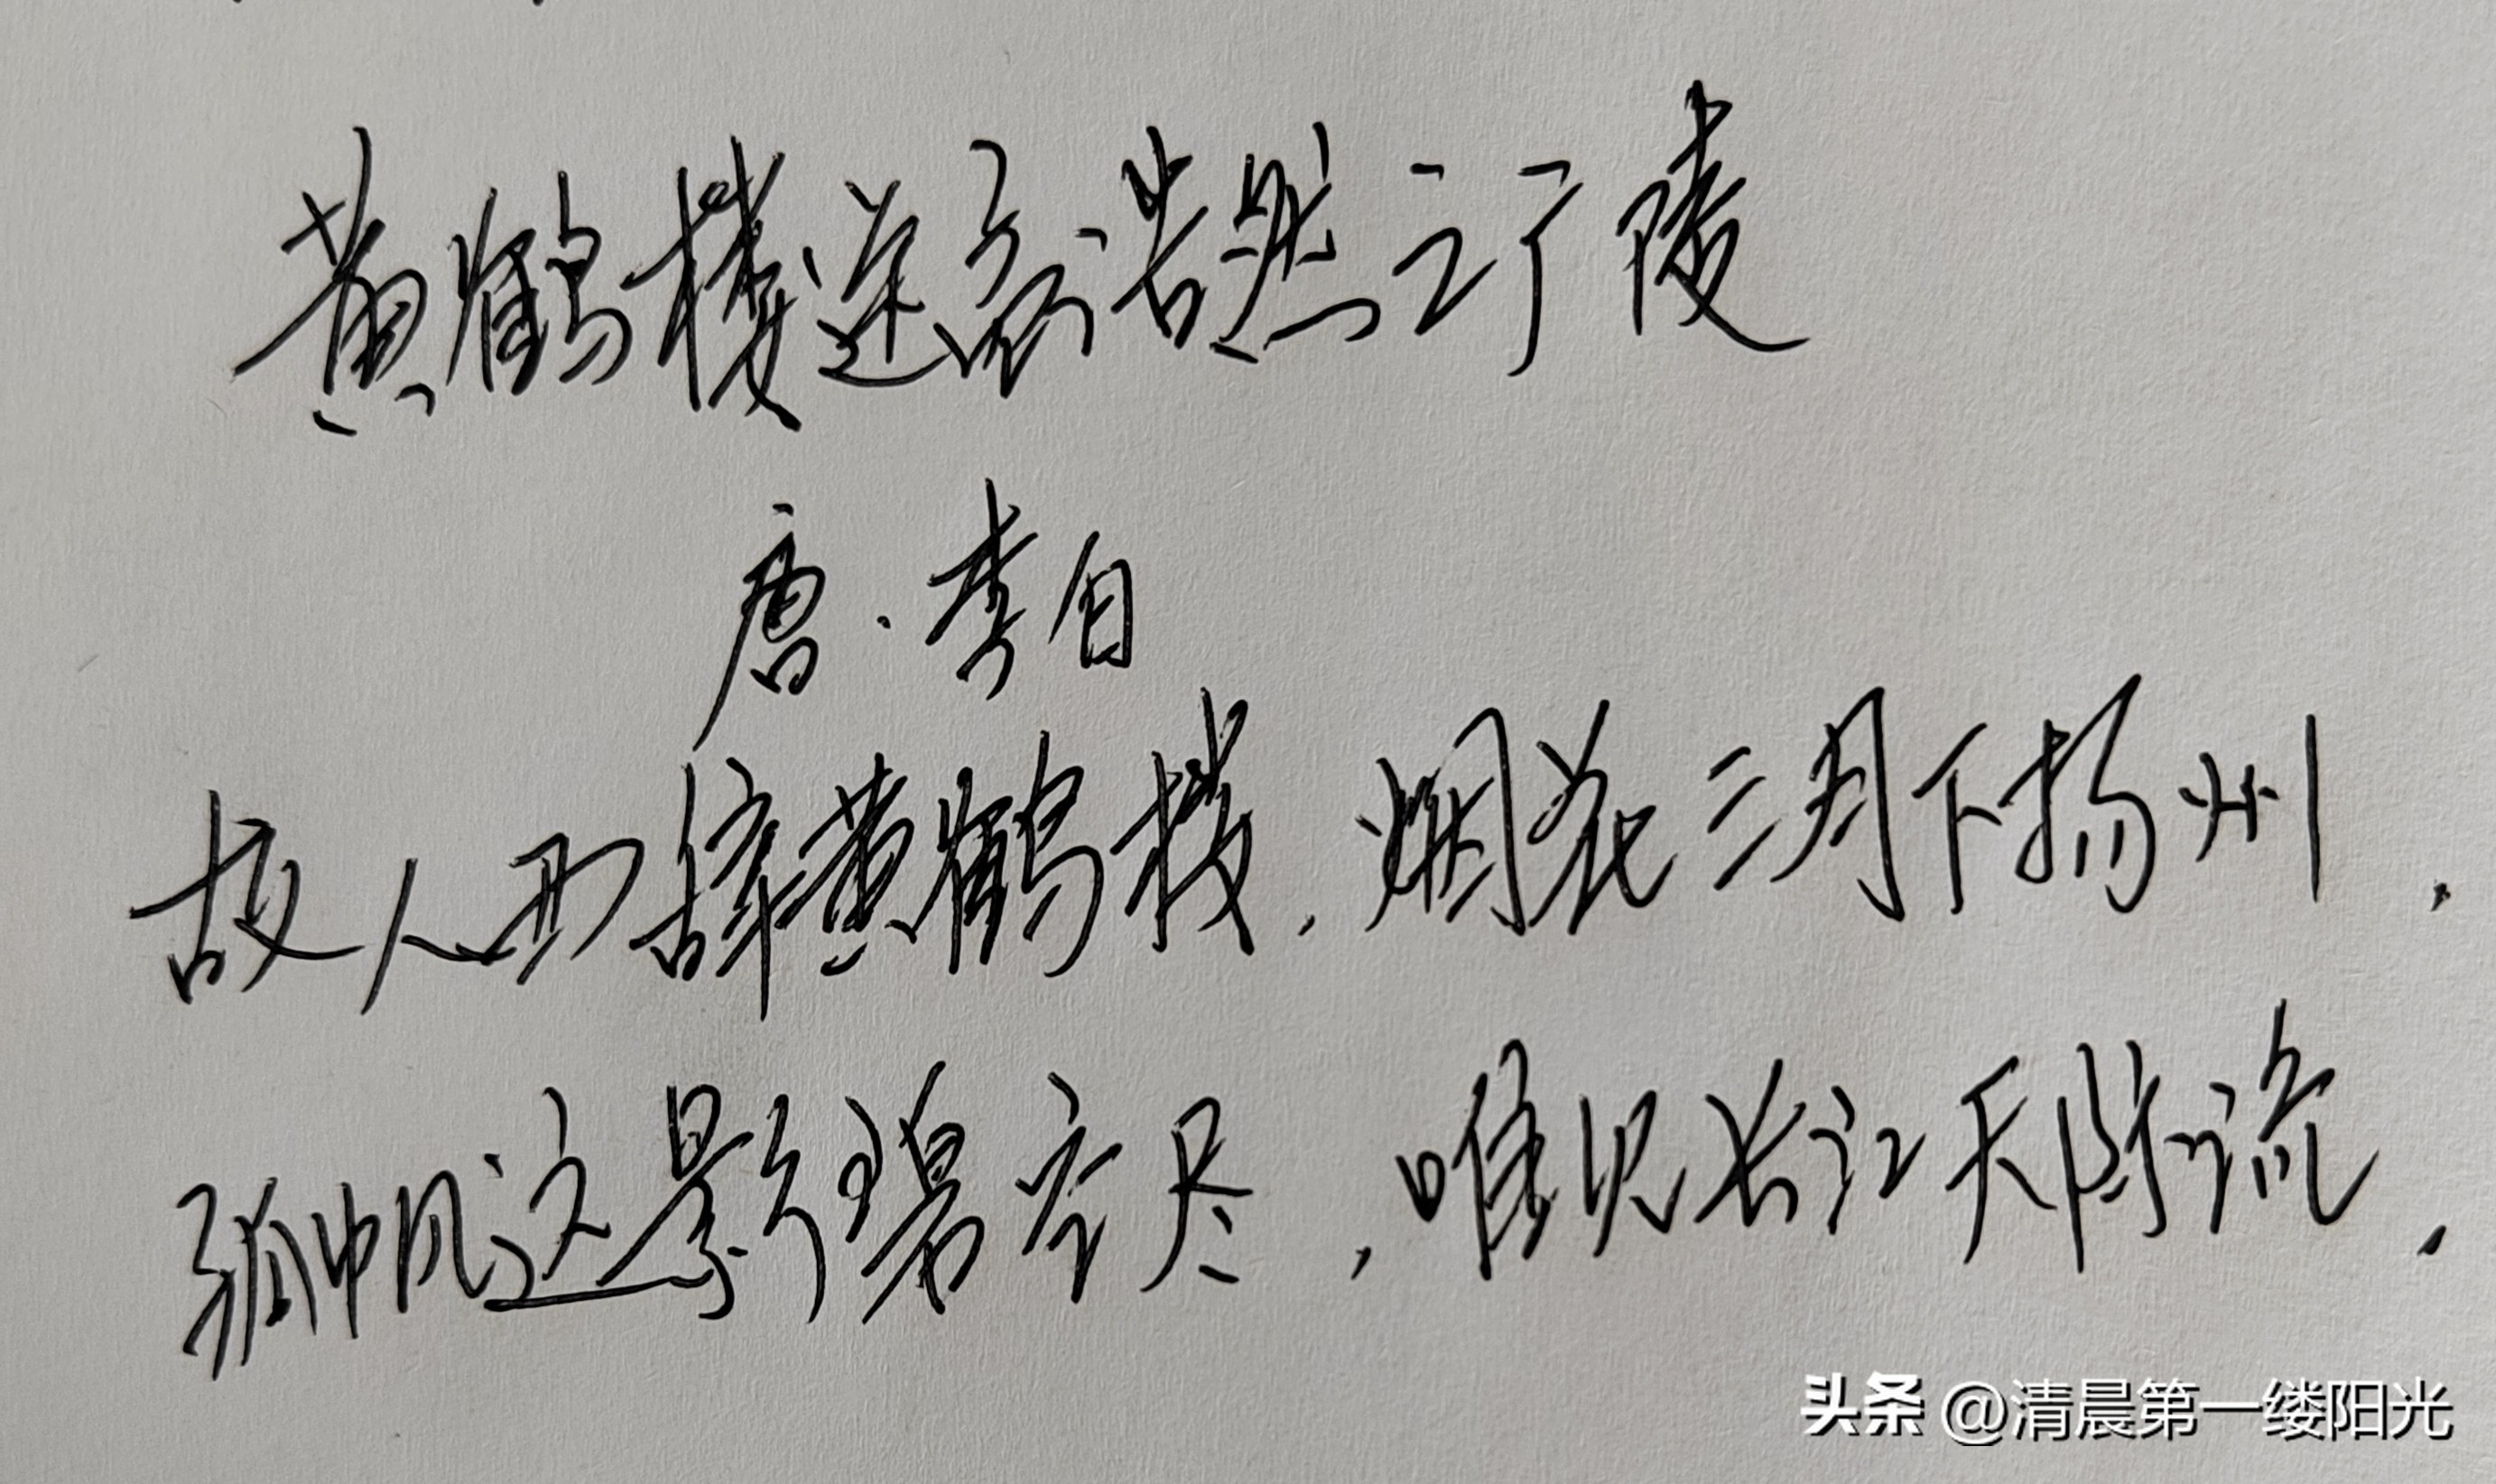 黄鹤楼送孟浩然之广陵
唐·李白
故人西辞黄鹤楼,烟花三月下扬州.
孤帆这影碧空尽,唯见长江天际流.
头条 @清晨第一缕阳光